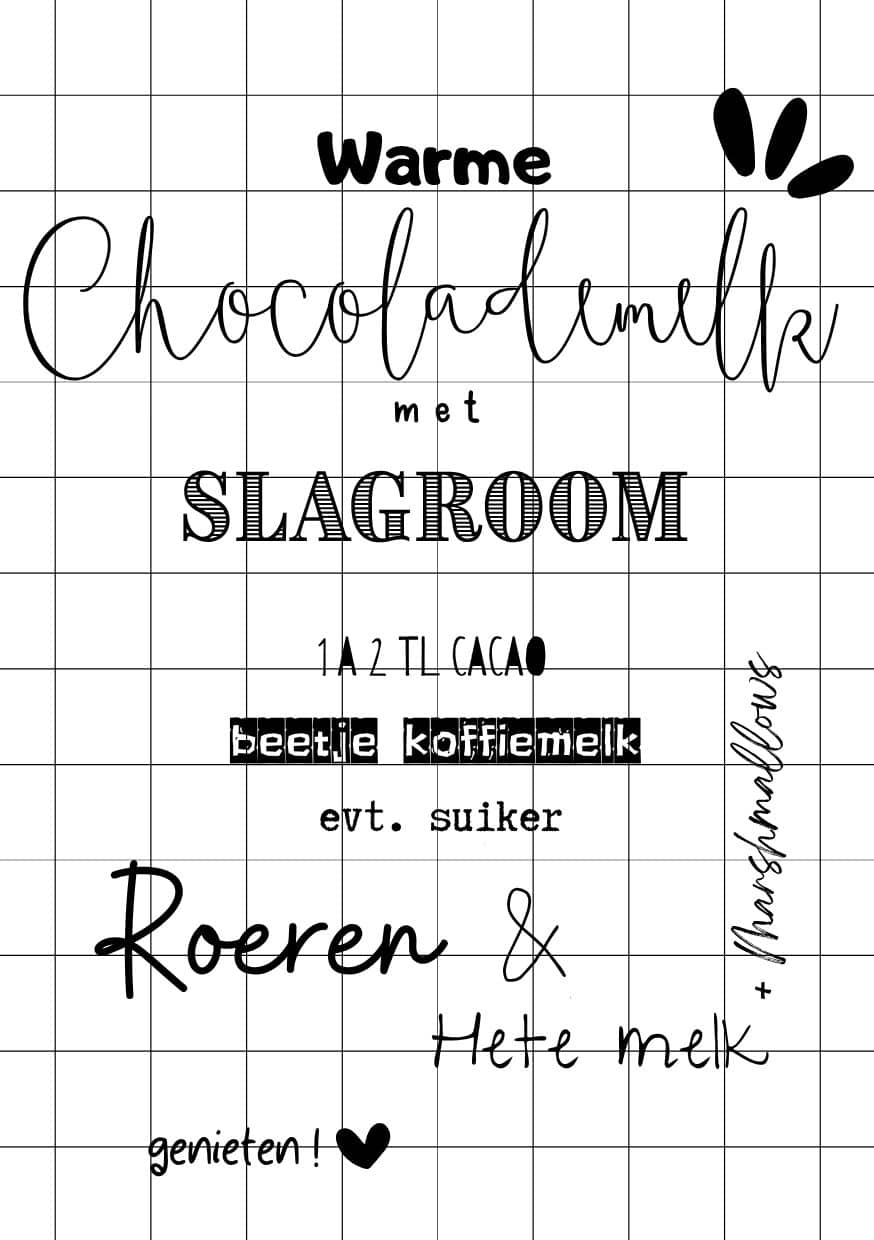 Warme
Chocolademelk
met
SLAGROOM
1 A 2 TL CACAO
beetje koffiemelk
evt. suiker
Roeren &
Hete melk
+ Marshmallows
genieten!